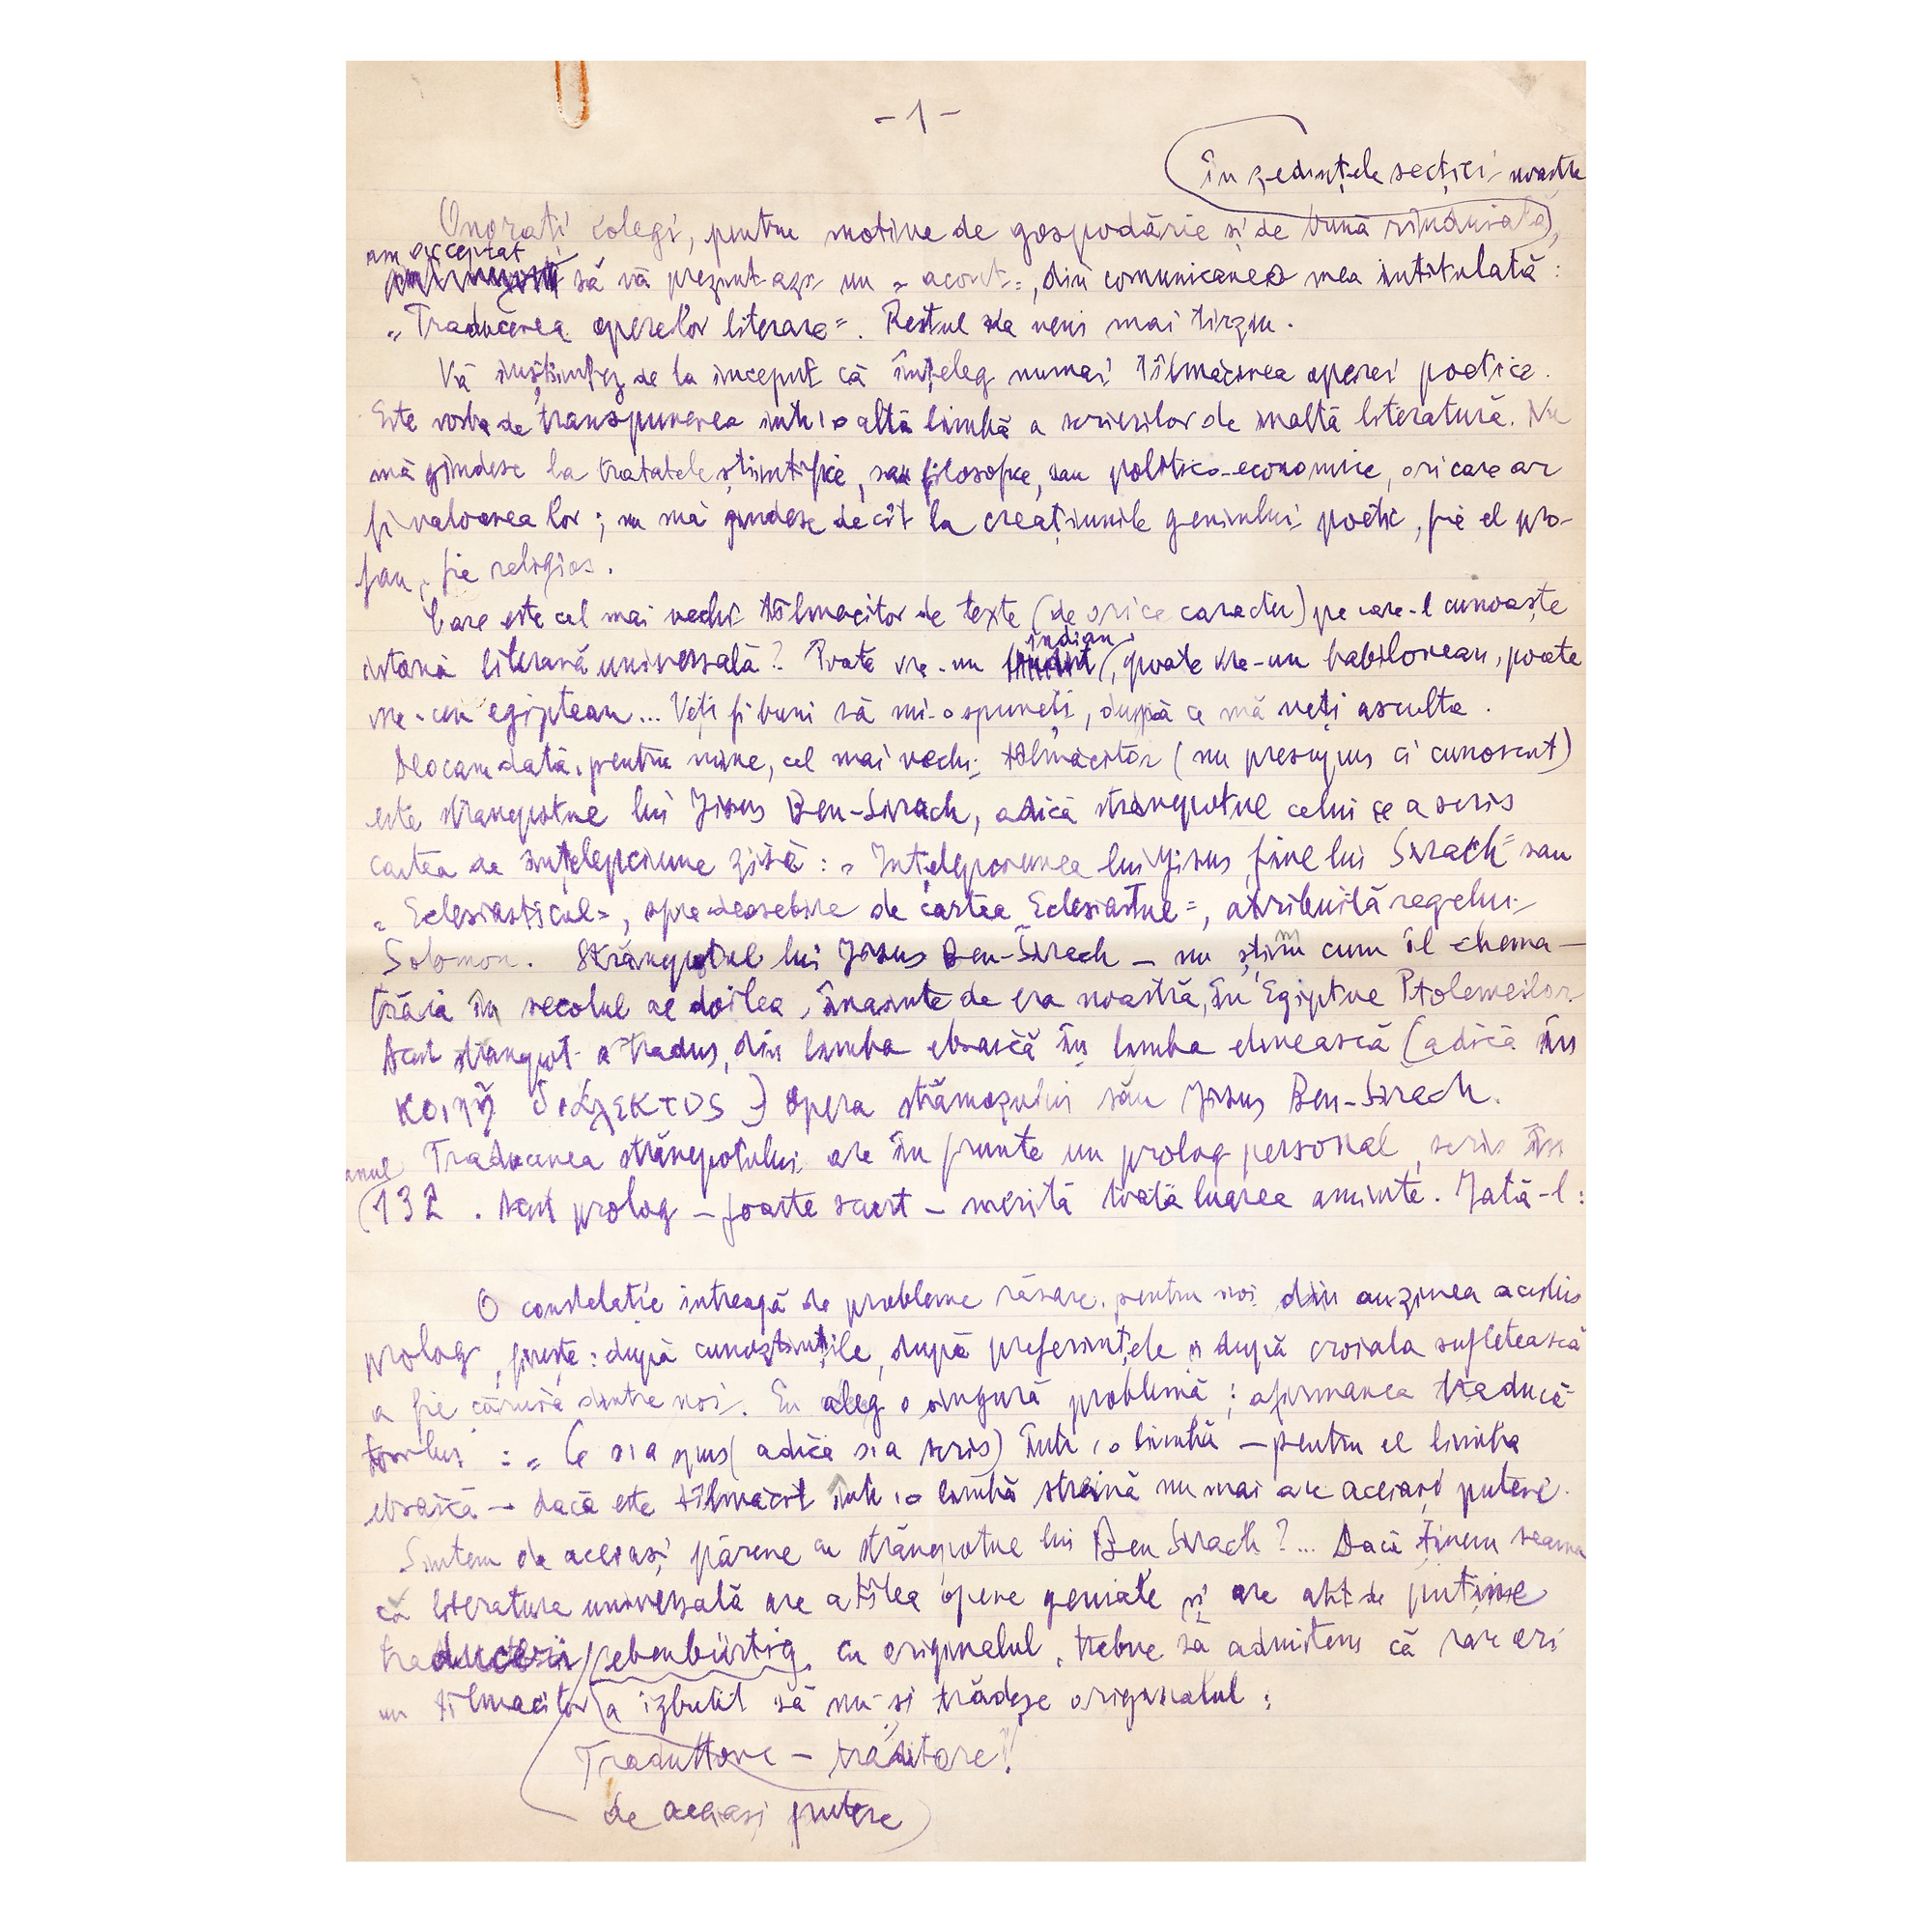 - 1 -
în ședințele secției noastre
Onorați colegi, pentru motive de gospodărie și de bună rînduială,
am acceptat
să vă prezint azi un „acont", din comunicarea mea intitulată:
„Traducerea operelor literare". Restul va veni mai tîrziu.
Vă înștiințez de la inceput că înțeleg numai tîlmăcirea operei poetice.
Este vorba de transpunerea intr'o altă limbă a scrierilor de inaltă literatură. Nu
mă gindesc la tratatele științifice, sau filosofice, sau politico-economice, oricare ar
fi valoarea lor; nu mă gindesc decît la creațiunile geniului poetic, fie el pro-
fan, fie religios.
Care este cel mai vechi tîlmăcitor de texte (de orice caracter) pe care-l cunoaște
istoria literară universală? Poate vre-un
indian
, poate vre-un babilonean, poate
vre-un egiptean... Veți fi buni să mi-o spuneți, după ce mă veți asculta.
Deocamdată, pentru mine, cel mai vechi tîlmăcitor (nu presupus ci cunoscut)
este strănepotul lui Iisus Ben-Sirach, adică strănepotul celui ce a scris
cartea de înțelepciune zisă: „Ințelepciunea lui Iisus fiul lui Sirach" sau
„Eclesiasticul", spre deosebire de cartea Eclesiastul", atribuită regelui
Solomon. Strănepotul lui Iisus Ben-Sirach – nu știm cum îl chema –
trăia în secolul al doilea, înainte de era noastră, în Egiptul Ptolemeilor
Acest strănepot a tradus, din limba ebraică în limba elinească (adică în
κοινῂ διάλεκτος) opera strămoșului său Iisus Ben-Sirach.
Traducerea strănepotului are în frunte un prolog personal, scris în
anul
132. Acest prolog – foarte scurt – merită toată luarea aminte. Iată-l:
O constelație intreagă de probleme răsare, pentru noi din auzirea acestui
prolog, firește: după cunoștințile, după preferințele și după croiala sufletească
a fie căruia dintre noi. Eu aleg o singură problemă; afirmarea traducă-
torului: „Ce s'a spus (adică s'a scris) într'o limbă – pentru el limba
ebraică – dacă este tîlmăcit într'o limbă străină nu mai are aceiași putere.
Sintem de aceiași părere cu strănepotul lui Ben Sirach?... Dacă ținem seama
că literatura universală are atîtea opere geniale și are atît de puține
traduceri ebenbürtig, cu originalul, trebue să admitem că rareori
un tîlmăcitor a izbutit să nu-și trădeze originalul;
Traduttore – traditore!
de aceiași putere